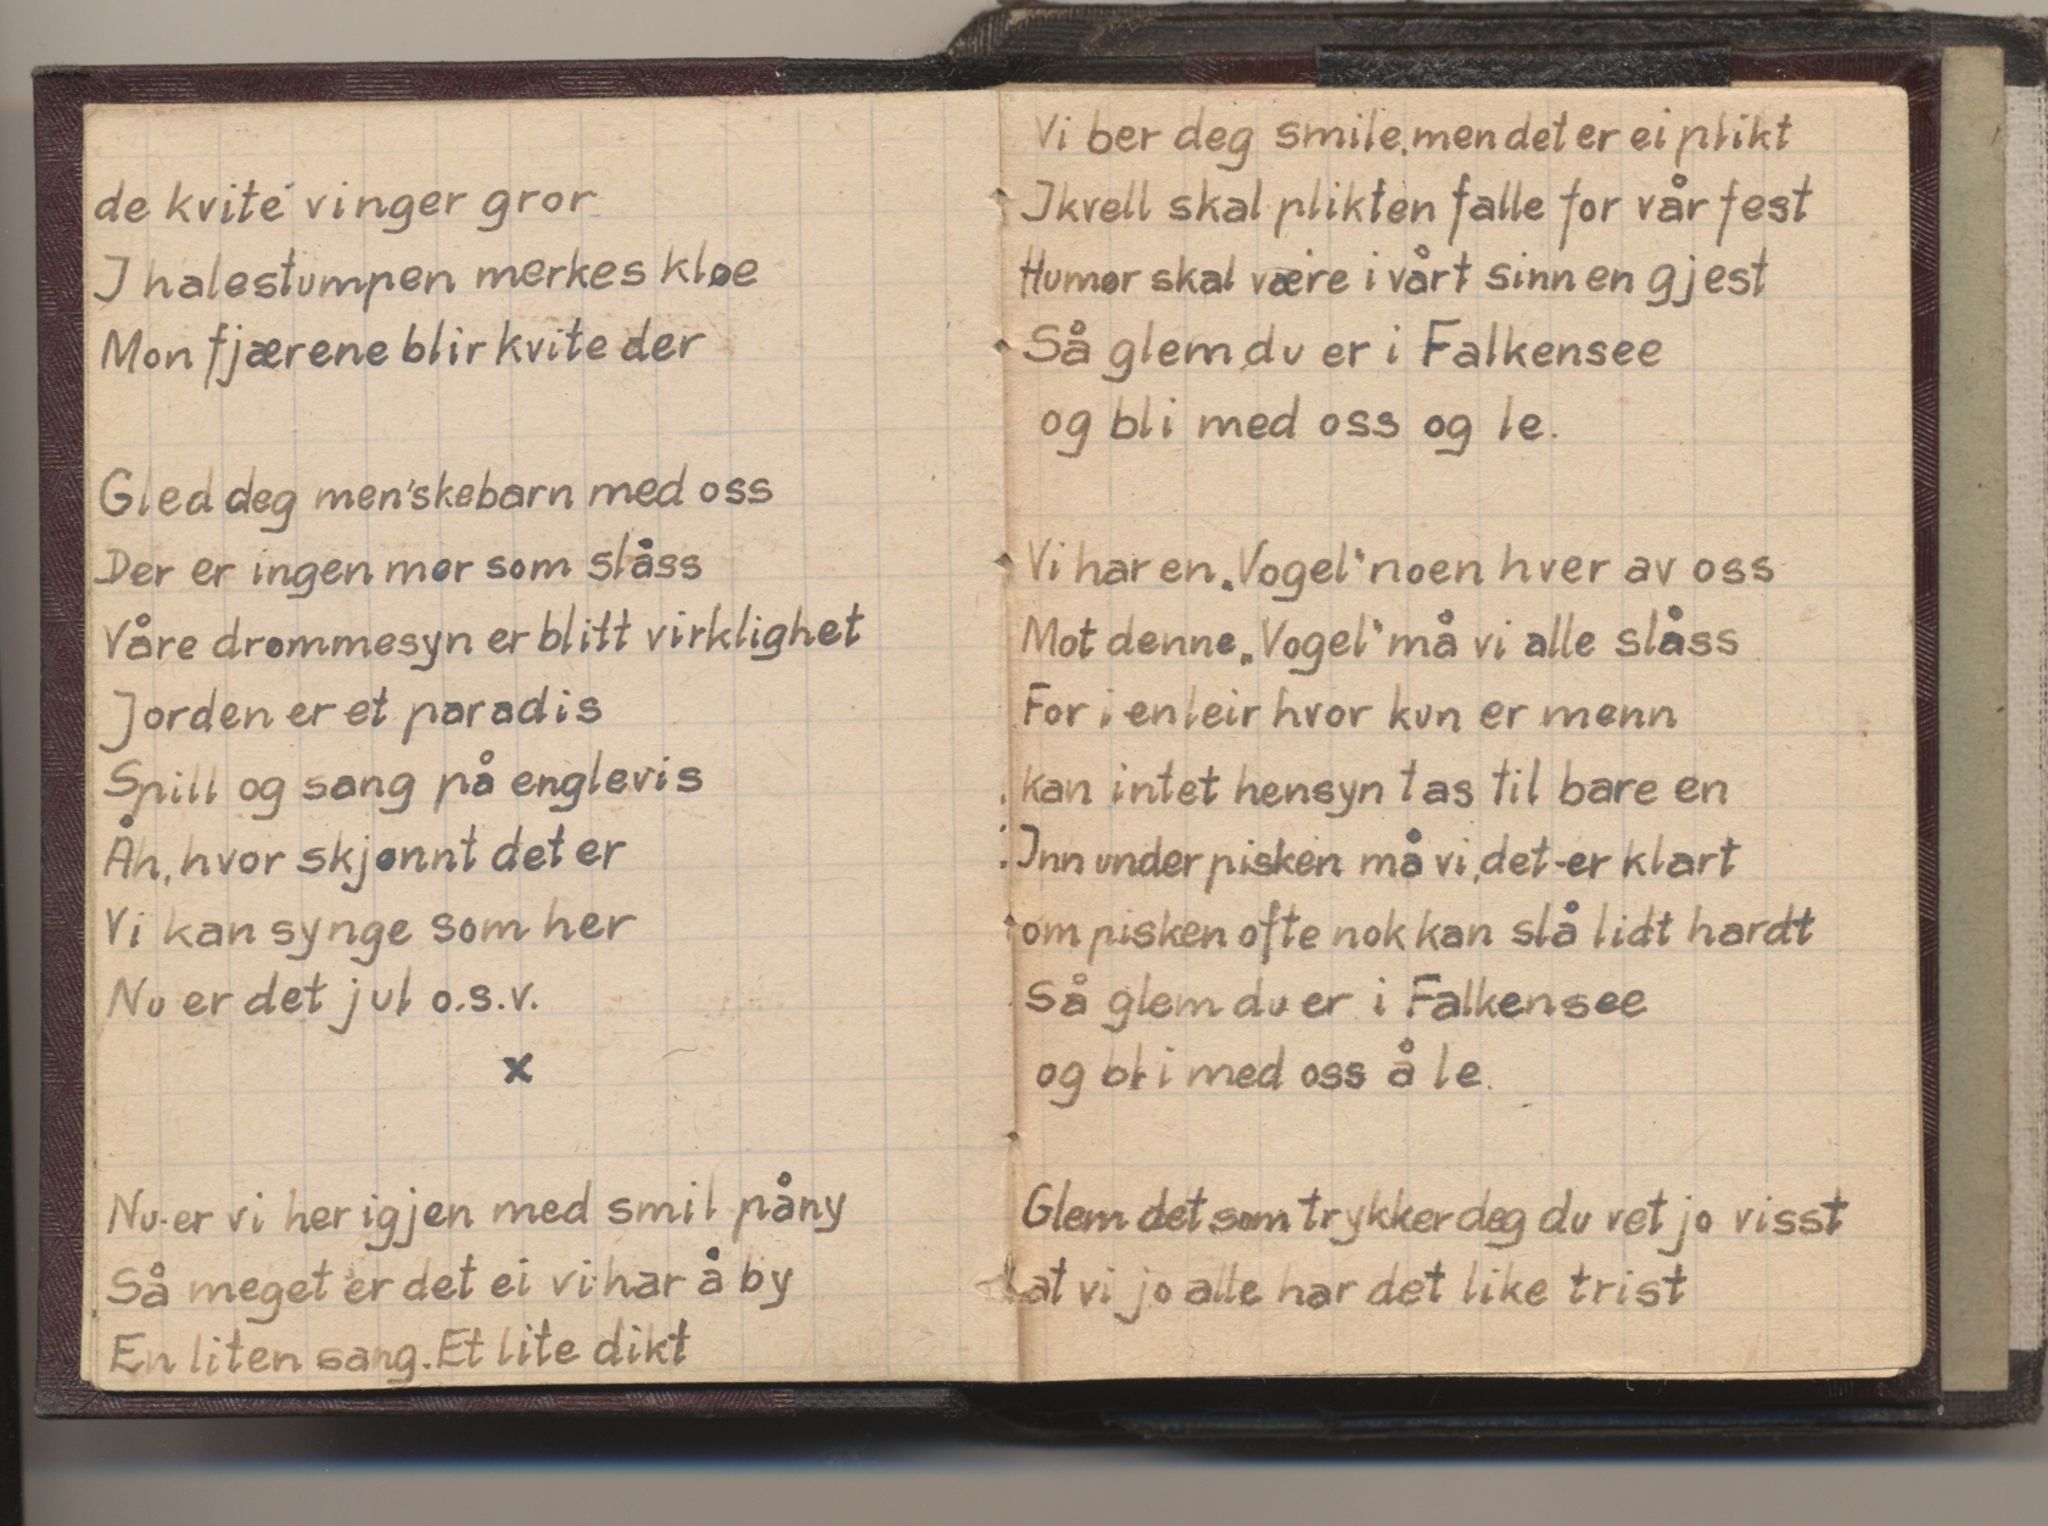 de kvite vinger gror
I halestumpen merkes kløe
Mon fjærene blir kvite der
Gled deg men'skebarn med oss
Der er ingen mer som slåss
Våre drømmesyn er blitt virklighet
Jorden er et paradis
Spill og sang på englevis
Åh, hvor skjønnt det er
Vi kan synge som her
Nu er det jul o.s.v.
x
Nu er vi her igjen med smil påny
Så meget er det ei vi har å by
En liten sang. Et lite dikt
Vi ber deg smile, men det er ei plikt
I kvell skal plikten falle for vår fest
Humør skal være i vårt sinn en gjest
Så glem du er i Falkensee
og bli med oss og le.
Vi har en „Vogel" noen hver av oss
Mot denne „Vogel" må vi alle slåss
For i en leir hvor kun er menn
kan intet hensyn tas til bare en
Inn under pisken må vi, det er klart
om pisken ofte nok kan slå lidt hardt
Så glem du er i Falkensee
og bli med oss å le.
Glem det som trykker deg du vet jo visst
at vi jo alle har det like trist